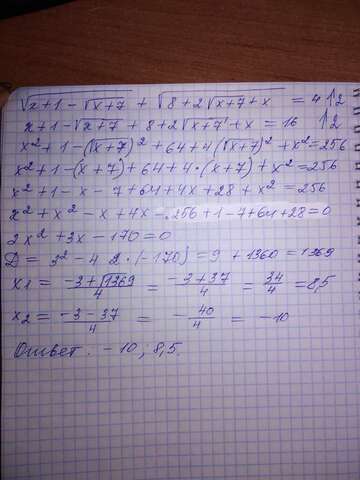 √x+1-√x+7 + √8+2√x+7+x = 4 ↑2
x+1-√x+7 + 8+2√x+7+x = 16 ↑2
x²+1-(√x+7)²+64+4(√x+7)²+x²=256
x²+1-(x+7)+64+4·(x+7)+x²=256
x²+1-x-7+64+4x+28+x²=256
x²+x²-x+4x-256+1-7+64+28=0
2x²+3x-170=0
D= 3²-4·2·(-170)=9+1360=1369
x₁ = -3+√1369/4 = -3+37/4 = 34/4 = 8,5
x₂ = -3-37/4 = -40/4 = -10
Ответ: -10; 8,5.